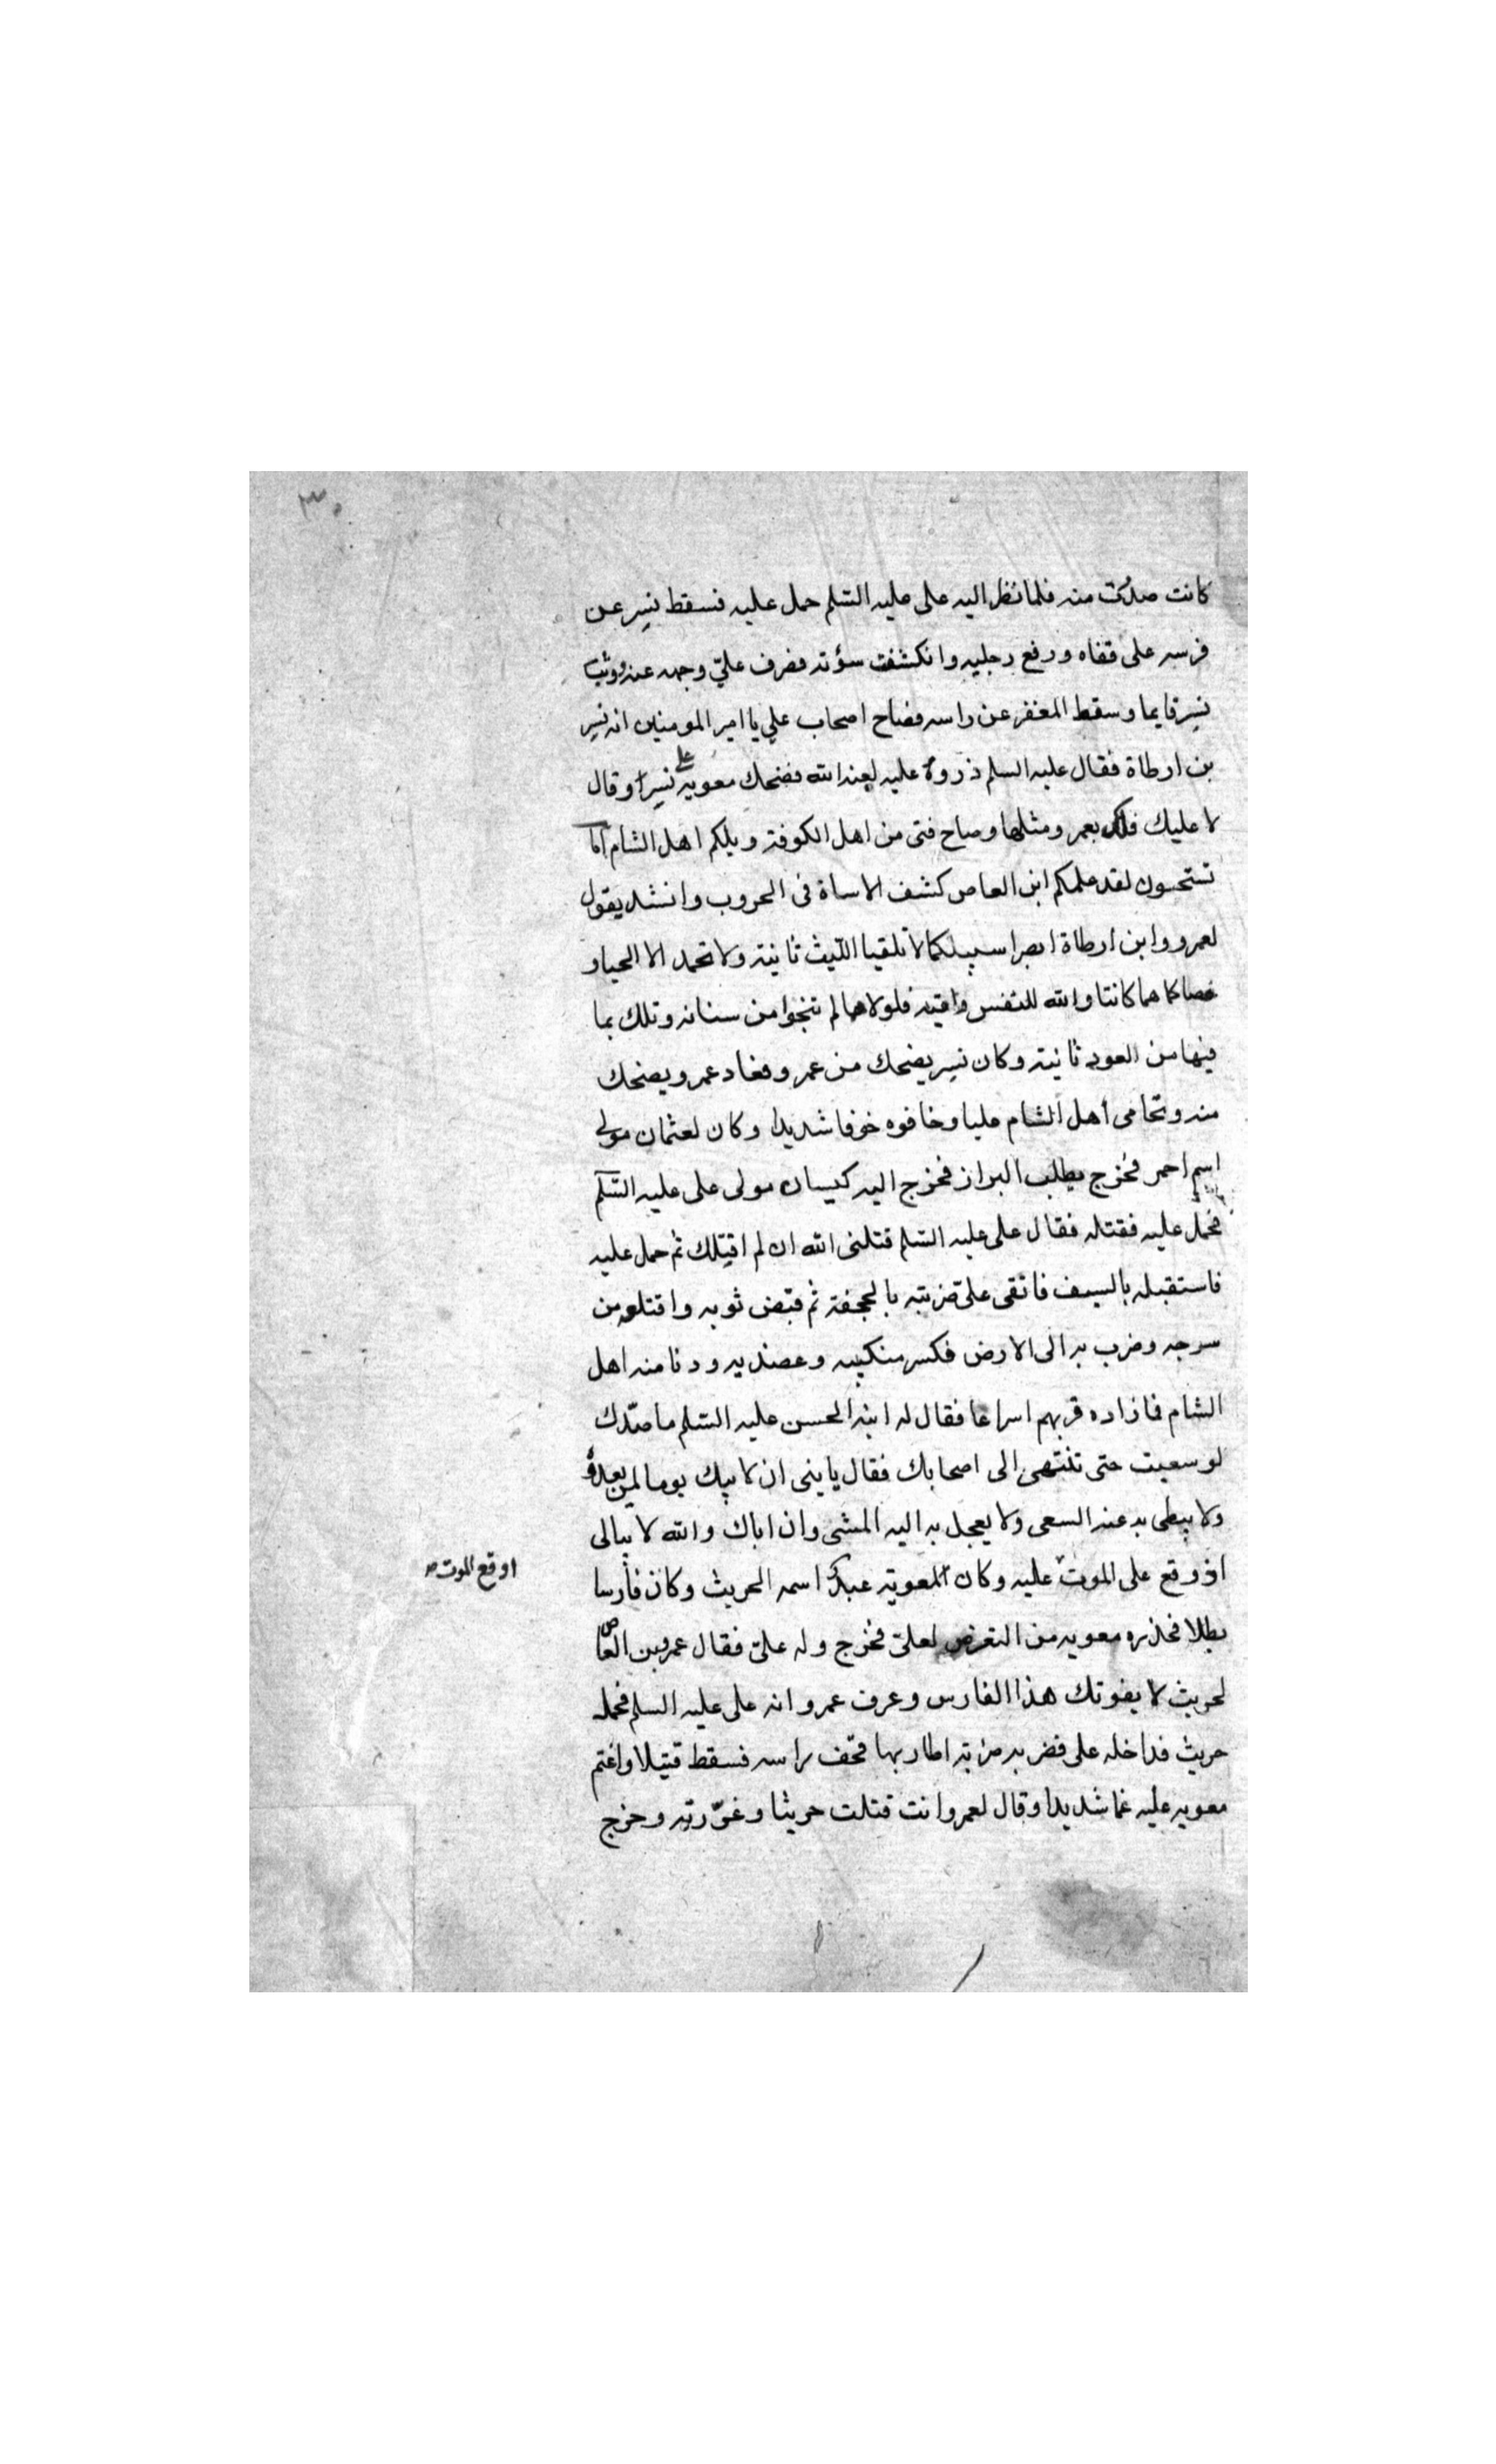 ٣٠
كانت صدرت منه فلما نظر اليه على عليه السلم حمل عليه فسقط نسر عن
فرسه على قفاه ورفع رجليه وانكشفت سؤته فصرف عليّ وجهه عنه ووثب
نسر قايما وسقط المغفر عن راسه فصاح اصحاب على يا امير المومنين انه نسر
بن ارطاة فقال عليه السلم ذروه عليه لعنه الله فضحك معويه على نسر وقال
لا عليك فلك بعمرو مثلها وصاح فتى من اهل الكوفة ويلكم اهل الشام اما
تستحون لقد علمكم ابن العاص كشف الاساة فى الحروب وانشد يقول
لعمرو وابن ارطاة ابصرا سبيلكما لا تلقيا الليث ثانية ولا تحمد الا الحيا و
خصاكما هما كانتا والله للنفس واقية فلولاهما لم تنجوا من سنانه وتلك بما
فيها من العود ثانية وكان نسر يضحك من عمرو فعاد عمرو يضحك
منه وتحامى أهل الشام عليا وخافوه خوفا شديدا وكان لعثمان مولى
اسم احمر فخرج يطلب البراز فخرج اليه كيسان مولى على عليه السلم
فحمل عليه فقتله فقال على عليه السلم قتلنى الله ان لم اقتلك ثم حمل عليه
فاستقبله بالسيف فاتقى على ضربته بالحجفة ثم قبض ثوبه واقتلعه من
سرجه وضرب به الى الارض فكسر منكبيه وعضديه ودنا منه اهل
الشام فما زاده قربهم اسراعا فقال له ابنه الحسن عليه السلم ما ضرك
لو سعيت حتى تنتهى الى اصحابك فقال يا بنى ان لابيك يوما لن يعدوه
ولا يبطى به عنه السعى ولا يعجل به اليه المشى وان اباك والله لا يبالى
اوقع على الموت عليه وكان لمعوية عبد اسمه الحريث وكان فارسا
او قع الموت صح
بطلا فحذره معويه من التعرض لعليّ فخرج وله عليّ فقال عمرو بن العاص
لحريث لا يفوتك هذا الفارس وعرف عمرو انه على عليه السلم فحمله
حريث فداخله على فضربه ضربة اطار بها قحف راسه فسقط قتيلا واغتم
معويه عليه غما شديدا وقال لعمرو انت قتلت حريثا وغرّرته وخرج